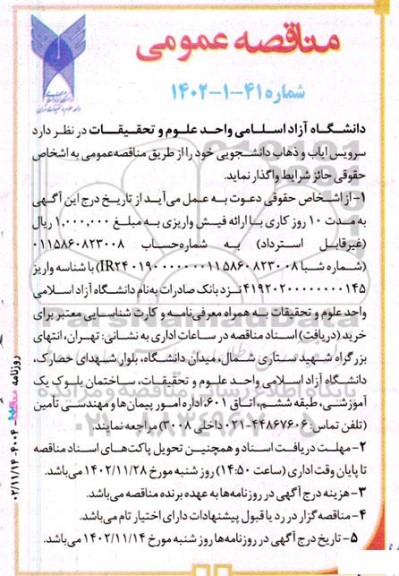 مناقصه عمومی
شماره ۴۱-۱-۱۴۰۲
دانشگاه آزاد اسلامی واحد علوم و تحقیقات در نظر دارد
سرویس ایاب و ذهاب دانشجویی خود را از طریق مناقصه عمومی به اشخاص
حقوقی حائز شرایط واگذار نماید.
۱-از اشخاص حقوقی دعوت به عمل می‌آید از تاریخ درج این آگهی
به مدت ۱۰ روز کاری با ارائه فیش واریزی به مبلغ ۱,۰۰۰,۰۰۰ ریال
(غیرقابل استرداد) به شماره‌حساب ۰۱۱۵۸۶۰۸۲۳۰۰۸
(شماره شبا IR۲۴۰۱۹۰۰۰۰۰۰۰۱۱۵۸۶۰۸۲۳۰۰۸) با شناسه واریز
۴۱۹۲۰۲۰۰۰۰۰۰۰۱۴۵ نزد بانک صادرات به‌نام دانشگاه آزاد اسلامی
واحد علوم و تحقیقات به همراه معرفی‌نامه و کارت شناسایی معتبر برای
خرید (دریافت) اسناد مناقصه در ساعات اداری به نشانی: تهران، انتهای
بزرگراه شهید ستاری شمال، میدان دانشگاه، بلوار شهدای حصارک،
دانشگاه آزاد اسلامی واحد علوم و تحقیقات، ساختمان بلوک یک
آموزشی، طبقه ششم، اتاق ۶۰۱، اداره امور پیمان‌ها و مهندسی تأمین
(تلفن تماس: ۴۴۸۶۷۶۰۶-۰۲۱ داخلی ۳۰۰۸) مراجعه نمایند.
۲-مهلت دریافت اسناد و همچنین تحویل پاکت‌های اسناد مناقصه
تا پایان وقت اداری (ساعت ۱۴:۵۰) روز شنبه مورخ ۱۴۰۲/۱۱/۲۸ می‌باشد.
۳-هزینه درج آگهی در روزنامه‌ها به عهده برنده مناقصه می‌باشد.
۴-مناقصه‌گزار در رد یا قبول پیشنهادات دارای اختیار تام می‌باشد.
۵-تاریخ درج آگهی در روزنامه‌ها روز شنبه مورخ ۱۴۰۲/۱۱/۱۴ می‌باشد.
ParsNamadData
روزنامه
۰۲/۱۱/۱۴-۴۰۰۴